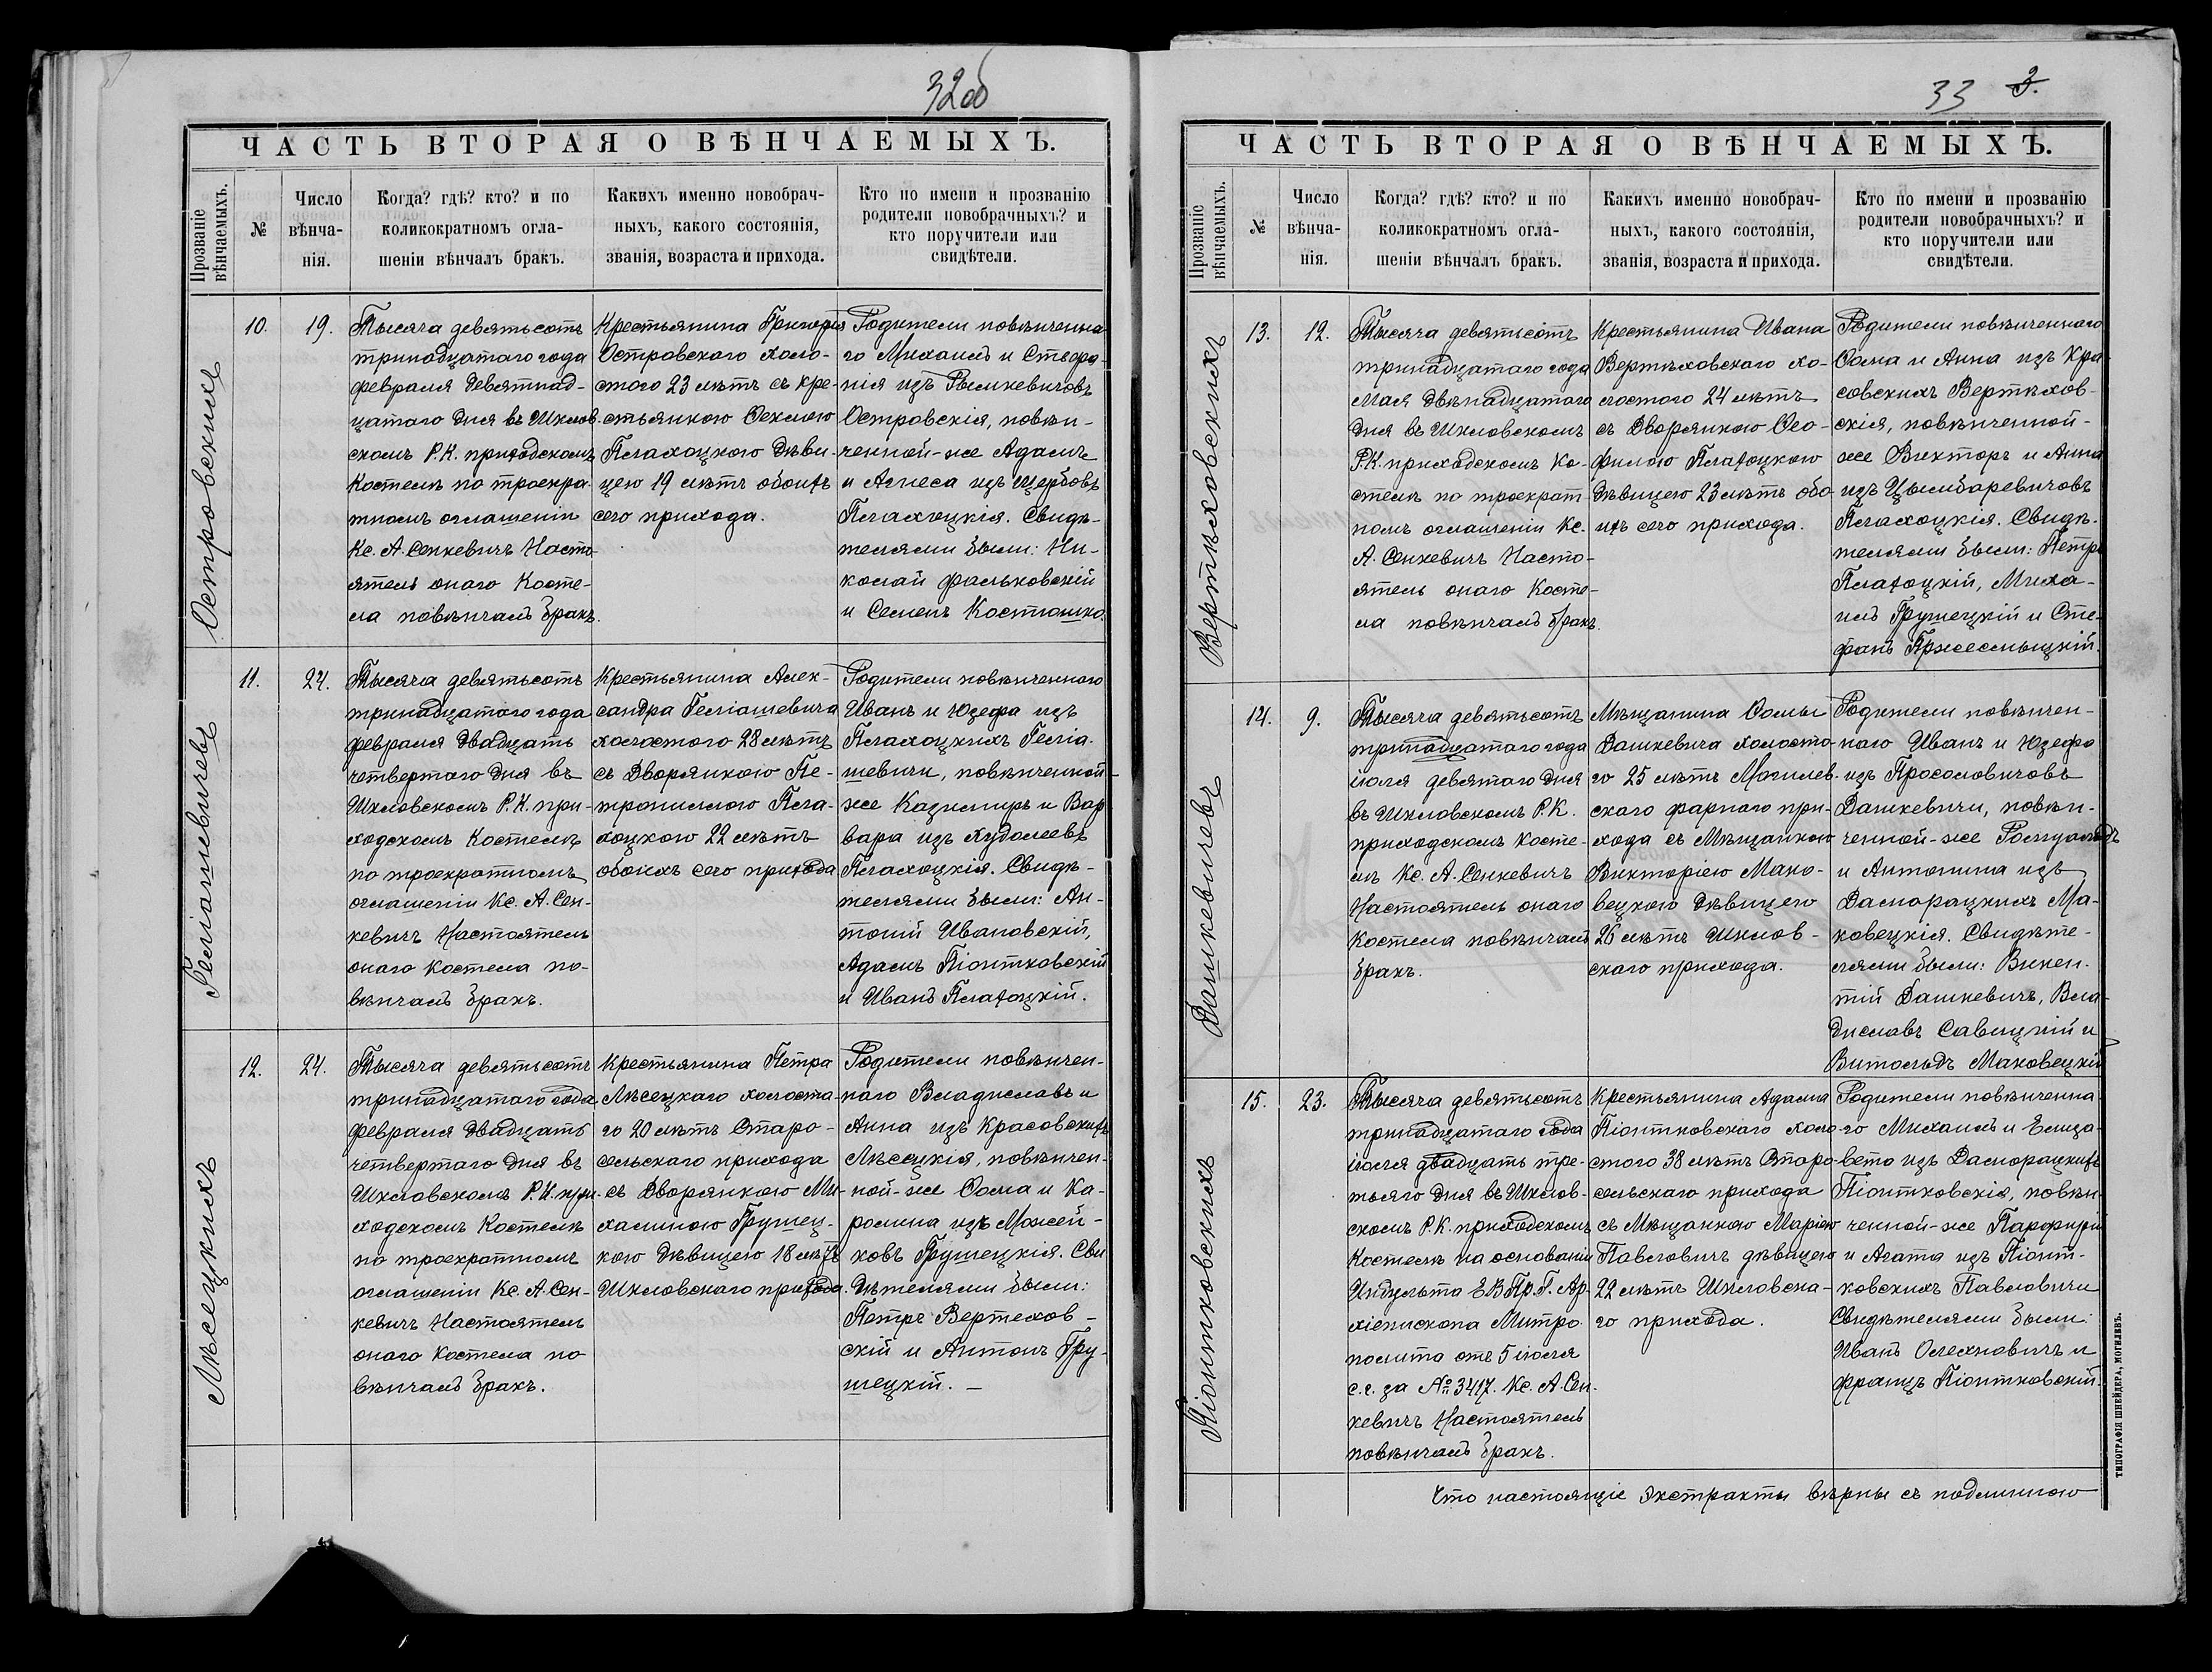 32об
ЧАСТЬ ВТОРАЯ О ВѢНЧАЕМЫХЪ.
Прозваніе вѣнчаемыхъ.
№
Число вѣнча-нія.
Когда? гдѣ? кто? и по
коликократномъ огла-
шеніи вѣнчалъ бракъ.
Какихъ именно новобрач-
ныхъ, какого состоянія,
званія, возраста и прихода.
Кто по имени и прозванію
родители новобрачныхъ? и
кто поручители или
свидѣтели.
Островскихъ
10.
19.
Тысяча девятьсотъ
тринадцатаго года
февраля девятнад-
цатаго дня въ Шклов-
скомъ Р.К. приходскомъ
Костелѣ по троекра-
тномъ оглашеніи
Кс. А. Сенкевичъ Насто-
ятель онаго Косте-
ла повѣнчалъ бракъ.
Крестьянина Григорія
Островскаго холо-
стого 23 лѣтъ съ кре-
стьянкою Феклою
Плахоцкою дѣви-
цею 19 лѣтъ обоихъ
сего прихода.
Родители повѣнченна-
го Михаилъ и Стефа-
нія изъ Рымкевичовъ
Островскія, повѣн-
ченной-же Адамъ
и Агнеса изъ Щербовъ
Плахоцкія. Свидѣ-
телями были: Ни-
колай Фальковскій
и Семенъ Костюшко.
Геліашевичевъ
11.
24.
Тысяча девятьсотъ
тринадцатаго года
февраля двадцать
четвертаго дня въ
Шкловскомъ Р.К. при-
ходскомъ Костелѣ
по троекратномъ
оглашеніи Кс. А. Сен-
кевичъ Настоятель
онаго Костела по-
вѣнчалъ бракъ.
Крестьянина Алек-
сандра Геліашевича
холостого 28 лѣтъ
съ Дворянкою Пе-
трониллою Пла-
хоцкою 22 лѣтъ
обоихъ сего прихода
Родители повѣнченного
Иванъ и Юзефа изъ
Плахоцкихъ Геліа-
шевичи, повѣнченной-
же Казимиръ и Вар-
вара изъ Худолеевъ
Плахоцкія. Свидѣ-
телями были: Ан-
тоній Ивановскій,
Адамъ Піонтковскій
и Иванъ Плахоцкій.
Лѣсецкихъ
12.
24.
Тысяча девятьсотъ
тринадцатаго года
февраля двадцать
четвертаго дня въ
Шкловскомъ Р.К. при-
ходскомъ Костелѣ
по троекратномъ
оглашеніи Кс. А. Сен-
кевичъ Настоятель
онаго Костела по-
вѣнчалъ бракъ.
Крестьянина Петра
Лѣсецкаго холоста-
го 20 лѣтъ Старо-
сельскаго прихода
съ Дворянкою Ми-
халиною Грушец-
кою дѣвицею 18 лѣтъ
Шкловскаго прихода.
Родители повѣнчен-
наго Владиславъ и
Анна изъ Красовскихъ
Лѣсецкія, повѣнчен-
ной-же Ѳома и Ка-
ролина изъ Можей-
ковъ Грушецкія. Сви-
дѣтелями были:
Петръ Вертехов-
скій и Антонъ Гру-
шецкій. —
33 3.
ЧАСТЬ ВТОРАЯ О ВѢНЧАЕМЫХЪ.
Прозваніе вѣнчаемыхъ.
№
Число вѣнча-нія.
Когда? гдѣ? кто? и по
коликократномъ огла-
шеніи вѣнчалъ бракъ.
Какихъ именно новобрач-
ныхъ, какого состоянія,
званія, возраста и прихода.
Кто по имени и прозванію
родители новобрачныхъ? и
кто поручители или
свидѣтели.
Вертѣховскихъ
13.
12.
Тысяча девятьсотъ
тринадцатаго года
Мая двѣнадцатаго
дня въ Шкловскомъ
Р.К. приходскомъ Ко-
стелѣ по троекрат-
номъ оглашеніи Кс.
А. Сенкевичъ Насто-
ятель онаго Косте-
ла повѣнчалъ бракъ.
Крестьянина Ивана
Вертѣховскаго хо-
лостого 24 лѣтъ
съ Дворянкою Ѳео-
филою Плахоцкою
дѣвицею 23 лѣтъ обо-
ихъ сего прихода.
Родители повѣнченнаго
Ѳома и Анна изъ Кра-
совскихъ Вертѣхов-
скія, повѣнченной-
же Викторъ и Анна
изъ Цымбаревичовъ
Плахоцкія. Свидѣ-
телями были: Петръ
Плахоцкій, Миха-
илъ Грушецкій и Сте-
фанъ Пржесмыцкій.
Дашкевичевъ
14.
9.
Тысяча девятьсотъ
тринадцатаго года
іюля девятаго дня
въ Шкловскомъ Р.К.
приходскомъ Косте-
лѣ Кс. А. Сенкевичъ
Настоятель онаго
Костела повѣнчалъ
бракъ.
Мѣщанина Ѳомы
Дашкевича холосто-
го 25 лѣтъ Могилев-
скаго фарнаго при-
хода съ Мѣщанкою
Викторіею Мако-
вецкою дѣвицею
26 лѣтъ Шклов-
скаго прихода.
Родители повѣнчен-
наго Иванъ и Юзефа
изъ Просоловичовъ
Дашкевичи, повѣн-
ченной-же Ромуальдъ
и Антонина изъ
Даморацкихъ Ма-
ковецкія. Свидѣте-
лями были: Викен-
тій Дашкевичъ, Вла-
диславъ Савицкій и
Витольдъ Маковецкій
Піонтковскихъ
15.
23.
Тысяча девятьсотъ
тринадцатаго года
іюля двадцать тре-
тьяго дня въ Шклов-
скомъ Р.К. приходскомъ
Костелѣ на основаніи
Индульта Е В Пр. Г. Ар-
хіепископа Митро-
полита отъ 5 іюля
с.г. за № 3417. Кс. А. Сен-
кевичъ Настоятель
повѣнчалъ бракъ.
Крестьянина Адама
Піонтковскаго холо-
стого 38 лѣтъ Старо-
сельскаго прихода
съ Мѣщанкою Маріею
Павловичъ дѣвицею
22 лѣтъ Шкловска-
го прихода.
Родители повѣнченна-
го Михаилъ и Елиза-
вета изъ Даморацкихъ
Піонтковскія, повѣн-
ченной-же Парфирій
и Агата изъ Піонт-
ковскихъ Павловичи
Свидѣтелями были:
Иванъ Олехновичъ и
Францъ Піонтковскій.
Что настоящіе экстракты вѣрны съ подлинною
ТИПОГРАФІЯ ШНЕЙДЕРА, МОГИЛЕВЪ.